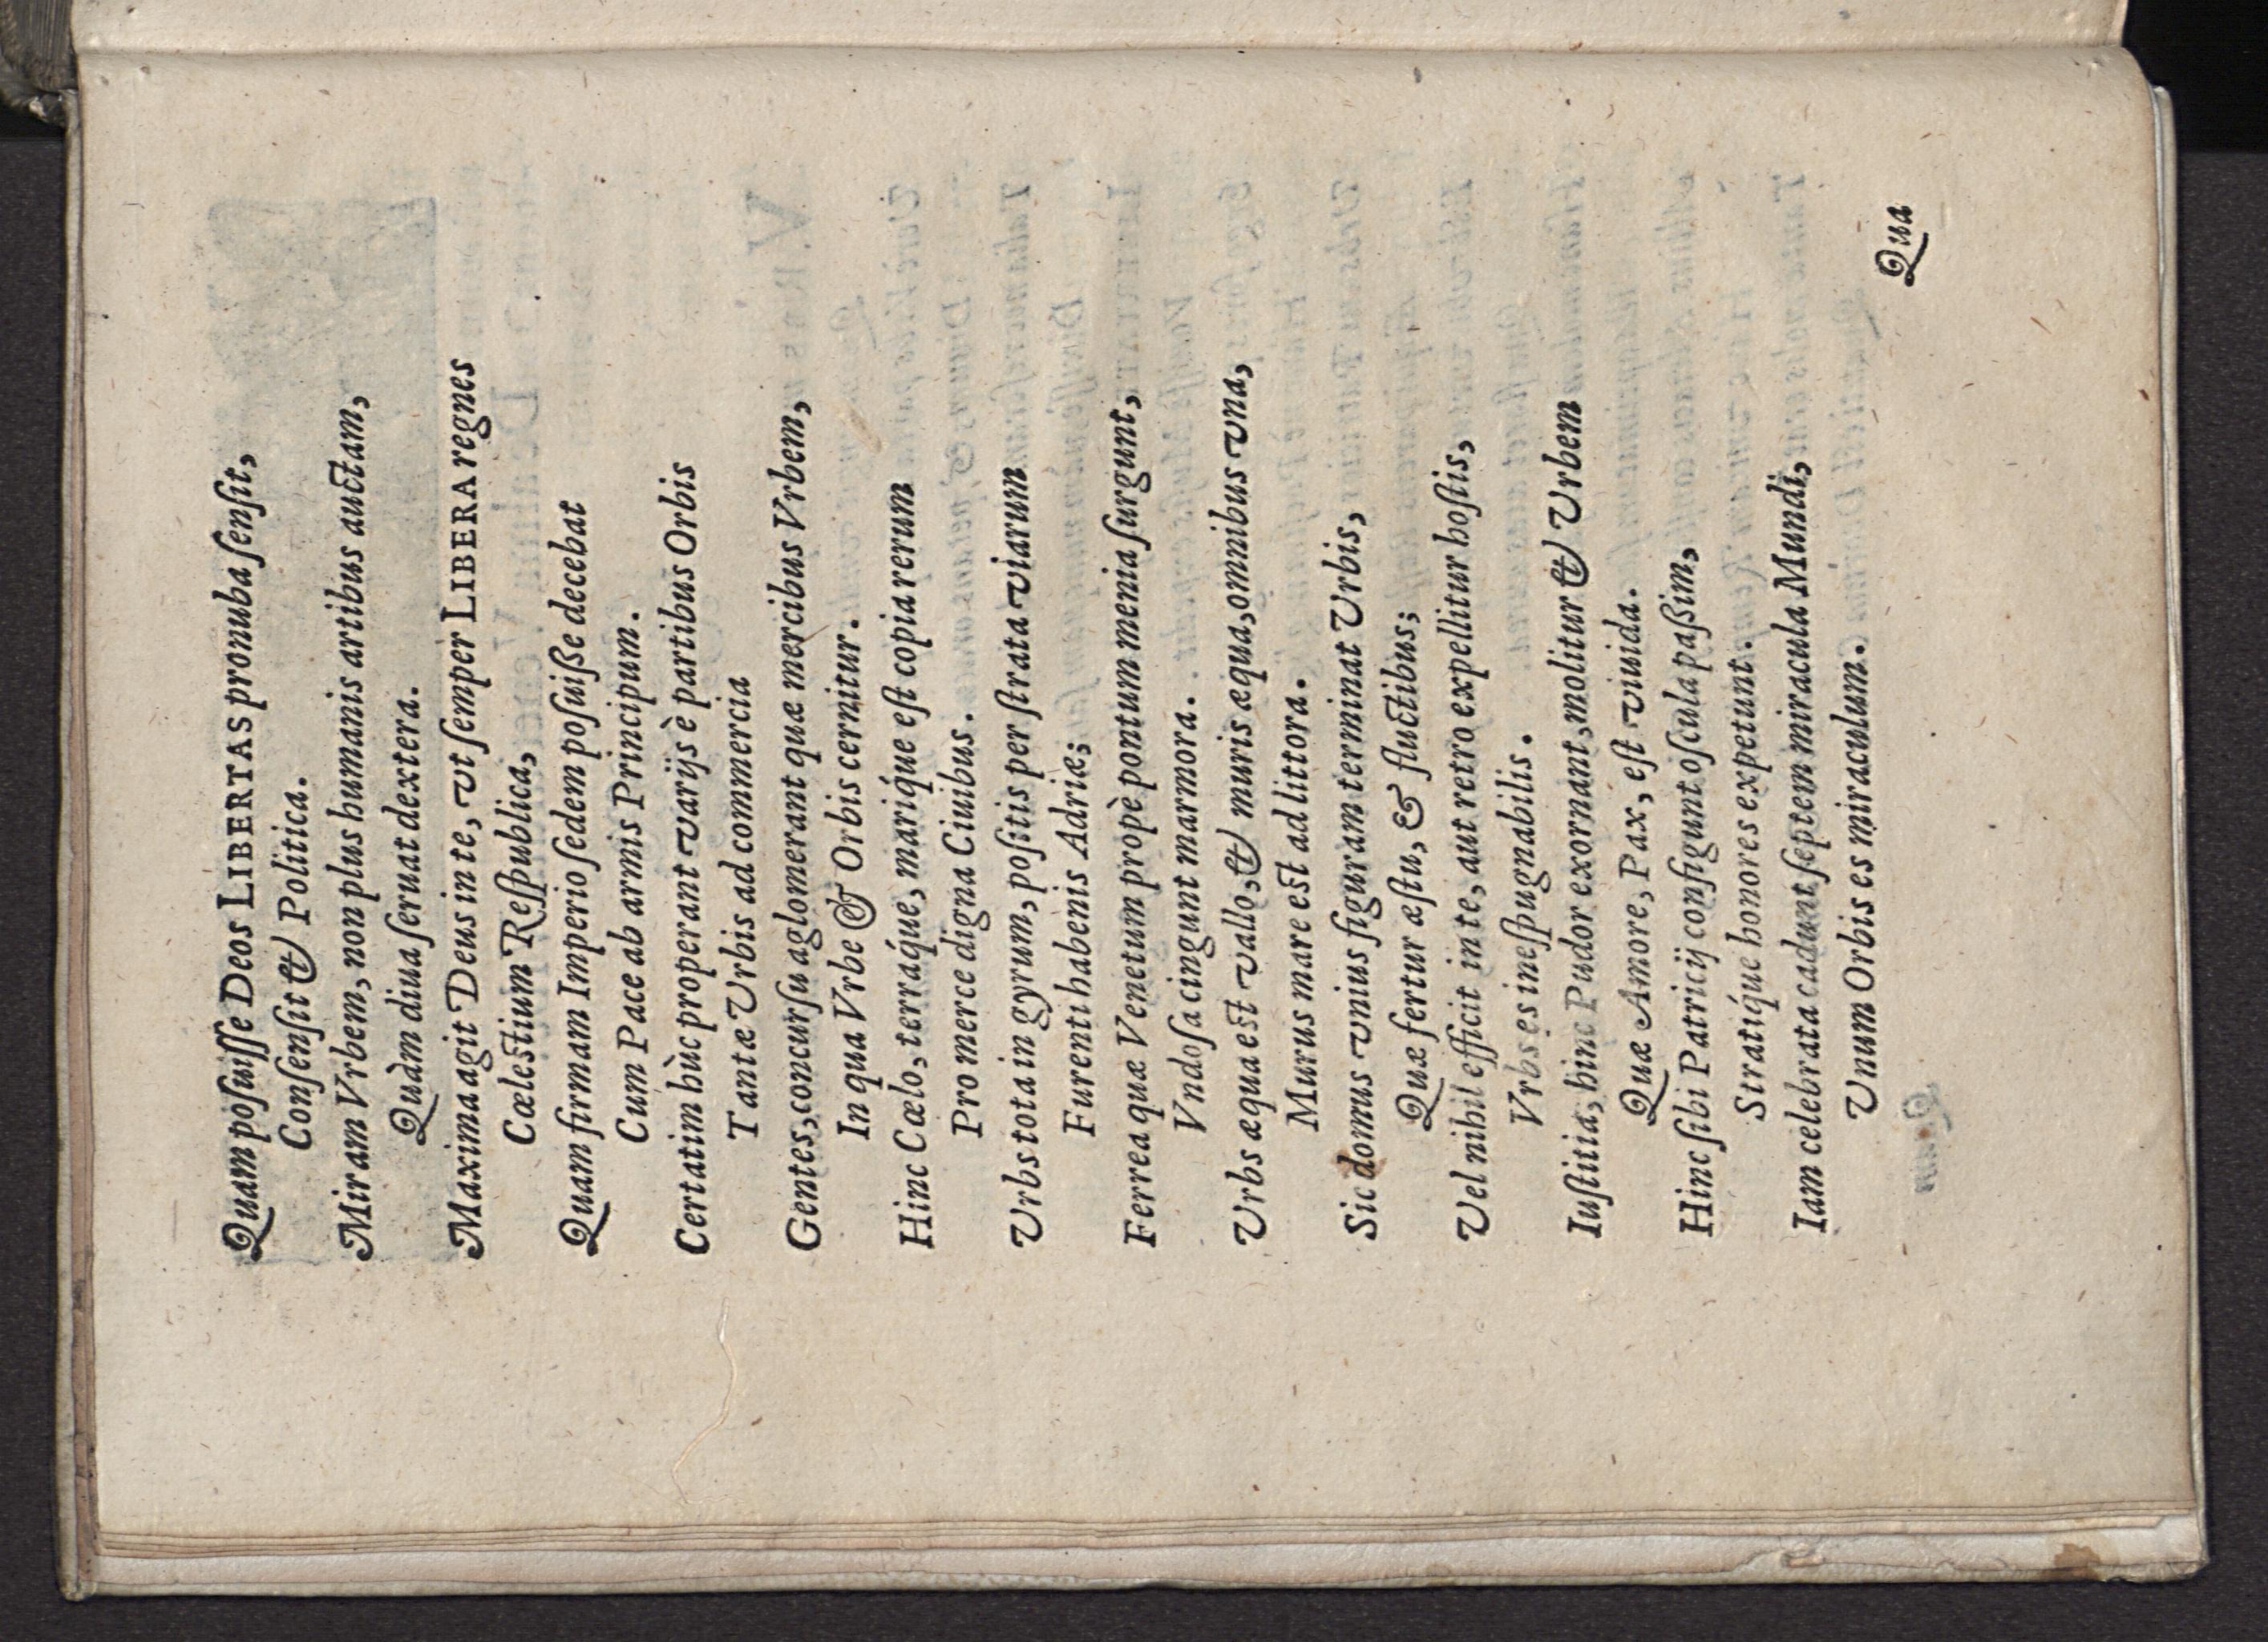 Quam poſuiſſe Deos LIBERTAS pronuba ſenſit,
Conſenſit & Politica.
Miram Vrbem, non plus humanis artibus auctam,
Quàm diua ſeruat dextera.
Maxima agit Deus in te, vt ſemper LIBERA regnes
Cœleſtium Reſpublica,
Quam firmam Imperio ſedem poſuiße decebat
Cum Pace ab armis Principum.
Certatim hùc properant varijs è partibus Orbis
Tantæ Vrbis ad commercia
Gentes, concurſu aglomerant quæ mercibus Vrbem,
In qua Vrbe & Orbis cernitur.
Hinc Cœlo, terráque, maríque eſt copia rerum
Pro merce digna Ciuibus.
Vrbs tota in gyrum, poſitis per ſtrata viarum
Furenti habenis Adriæ;
Ferrea quæ Venetum propè pontum menia ſurgunt,
Vndoſa cingunt marmora.
Vrbs æqua eſt vallo, & muris æqua, omnibus vna,
Murus mare eſt ad littora.
Sic domus vnius figuram terminat Vrbis,
Quæ fertur æſtu, & fluctibus;
Vel nihil efficit in te, aut retro expellitur hoſtis,
Vrbs es ineſpugnabilis.
Iuſtitia, hinc Pudor exornant, molitur & Vrbem
Quæ Amore, Pax, eſt viuida.
Hinc ſibi Patricij configunt oſcula paßim,
Stratíque honores expetunt.
Iam celebrata cadunt ſeptem miracula Mundi,
Vnum Orbis es miraculum.
Qua